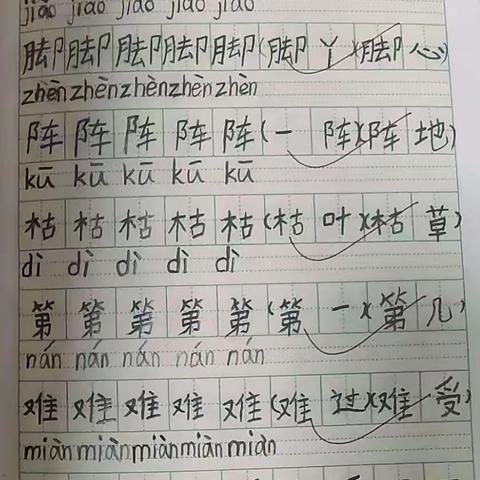 jiǎo jiǎo jiǎo jiǎo jiǎo
脚脚脚脚脚(脚丫)(脚心)
zhèn zhèn zhèn zhèn zhèn
阵阵阵阵阵(一阵)(阵地)
kū kū kū kū kū
枯枯枯枯枯(枯叶)(枯草)
dì dì dì dì dì
第第第第第(第一)(第几)
nán nán nán nán nán
难难难难难(难过)(难受)
miàn miàn miàn miàn miàn